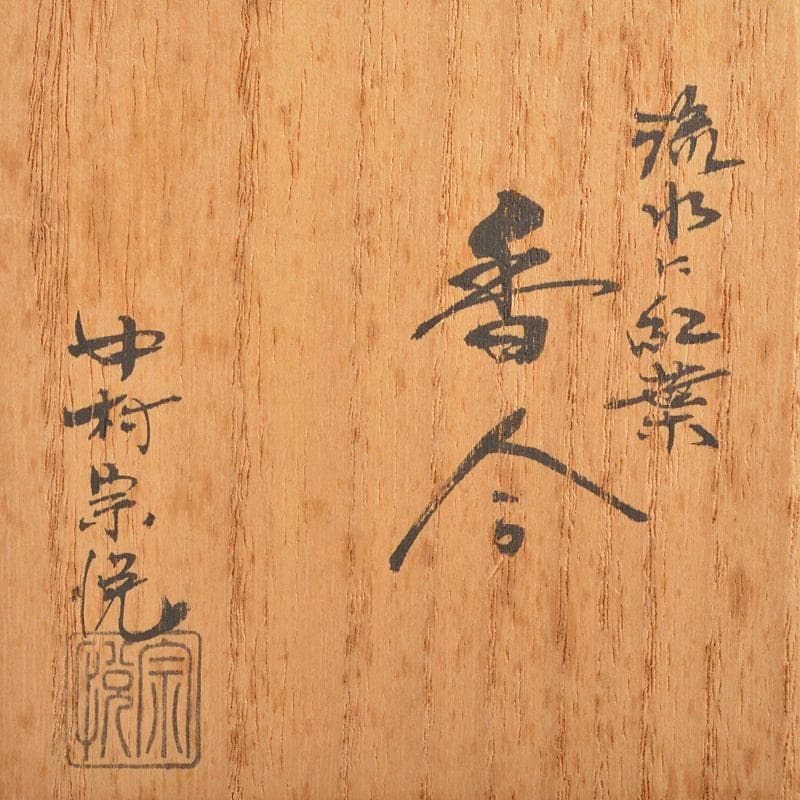 流水に紅葉
香合
中村宗悦
宗悦